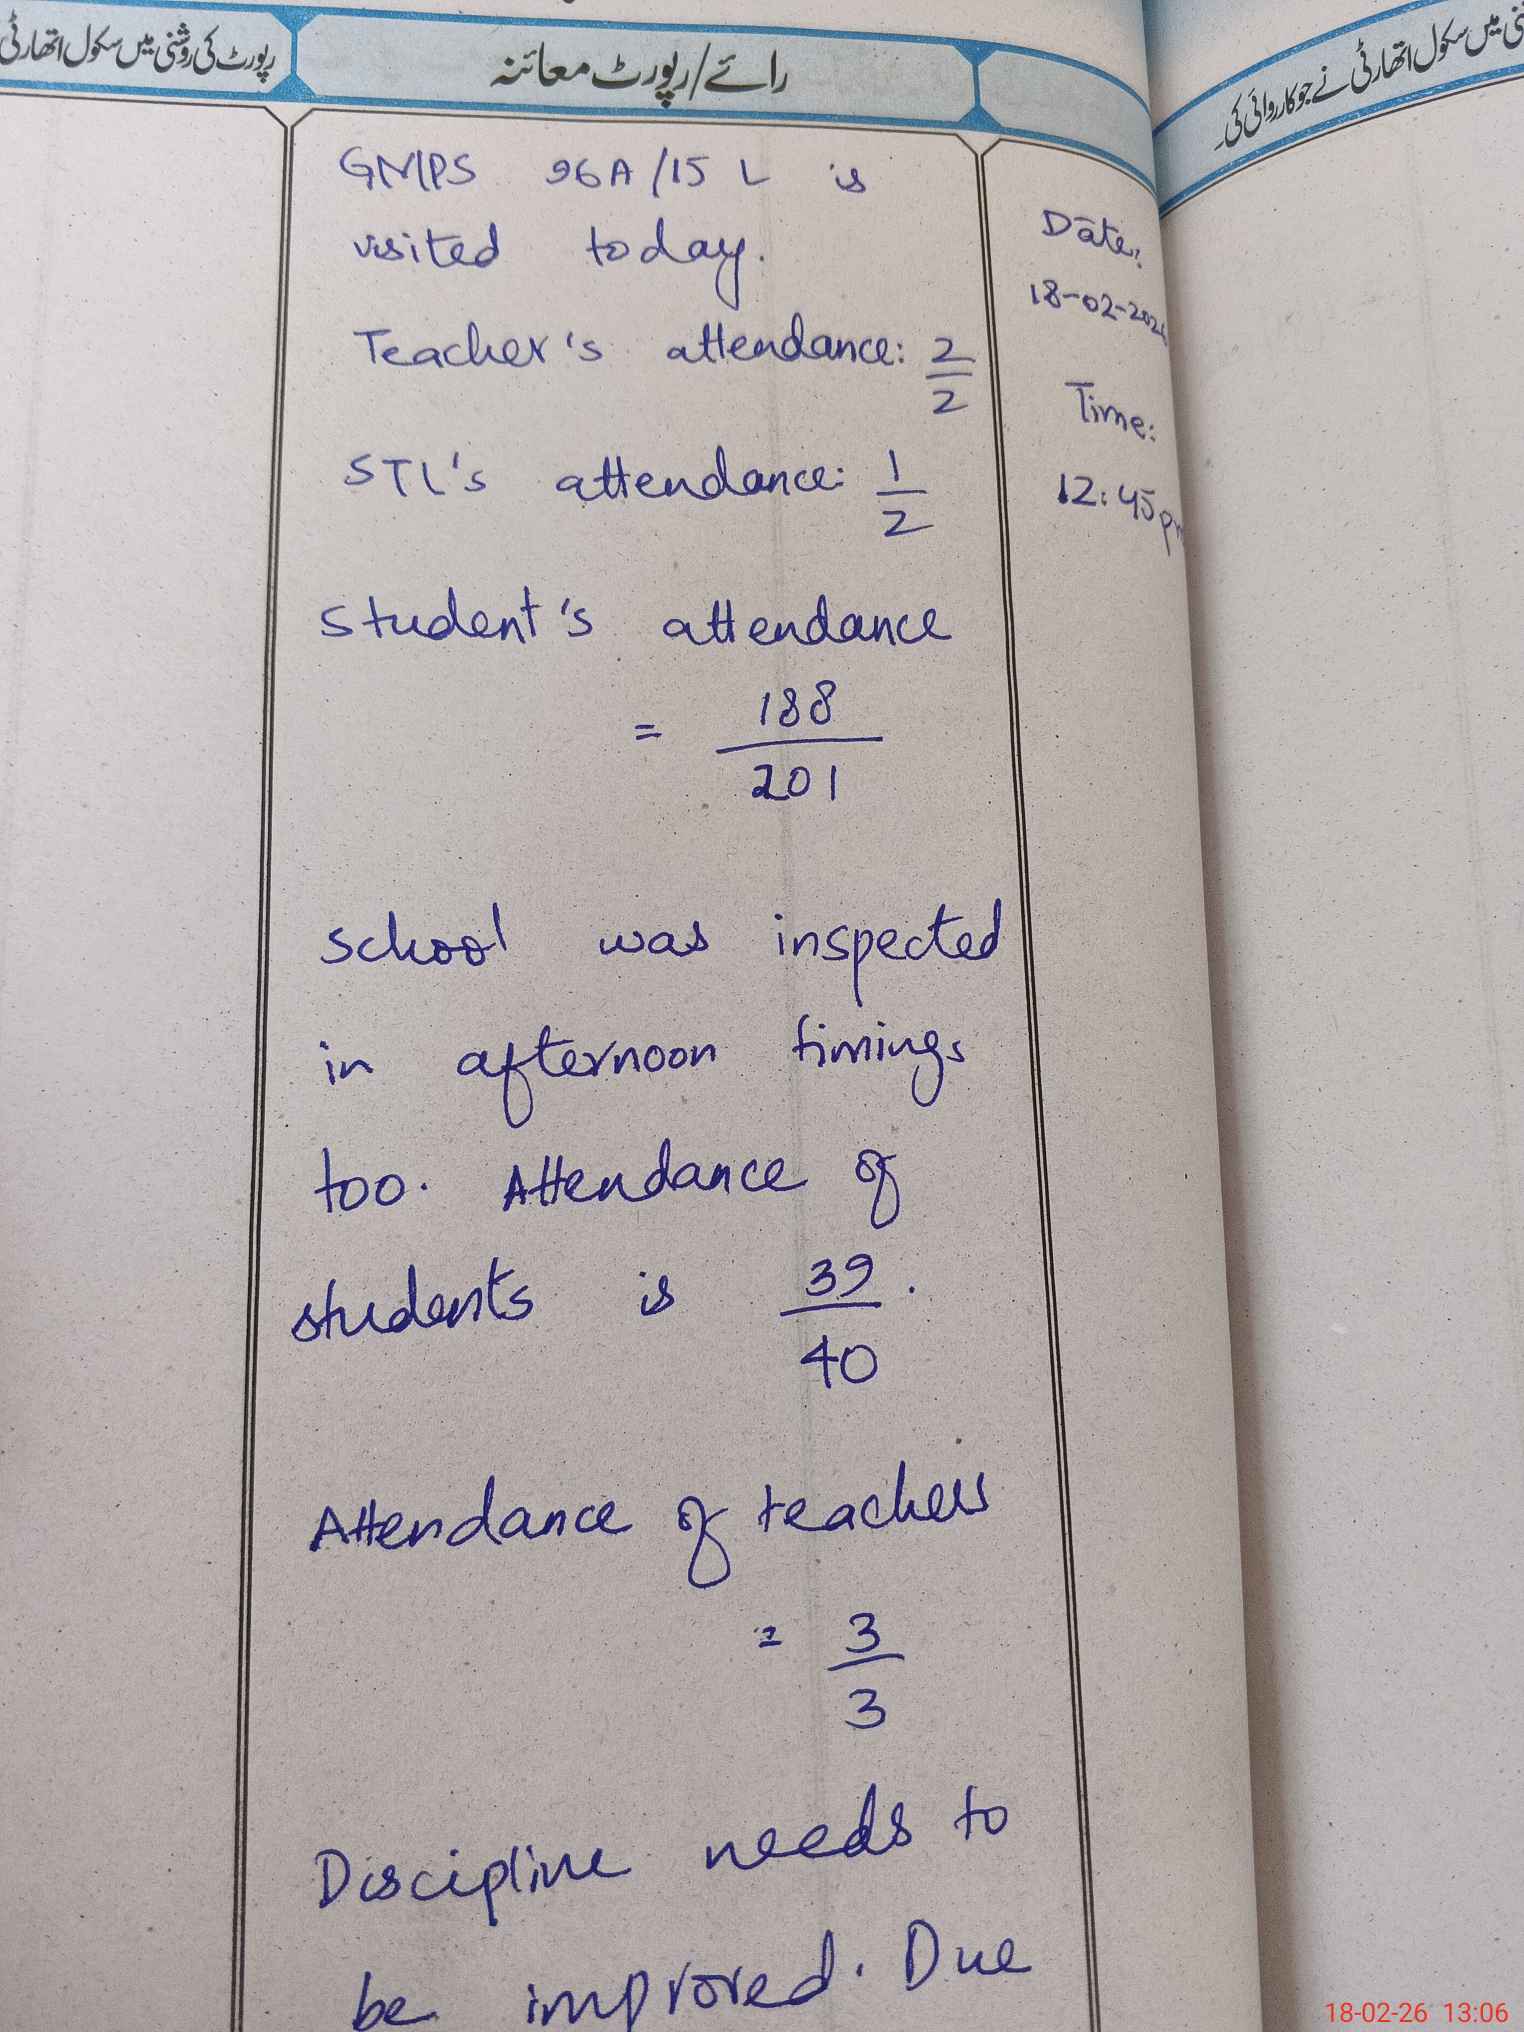 رپورٹ کی روشنی میں سکول اتھارٹی
رائے/رپورٹ معائنہ
نی میں سکول اتھارٹی نے جو کارروائی کی۔
GMPS 96A/15 L is
visited today.
Teacher's attendance: 2/2
STL's attendance: 1/2
Student's attendance
= 188/201
School was inspected
in afternoon timings
too. Attendance of
students is 39/40.
Attendance of teachers
= 3/3
Discipline needs to
be improved. Due
Date:
18-02-202
Time:
12:45 p
18-02-26 13:06